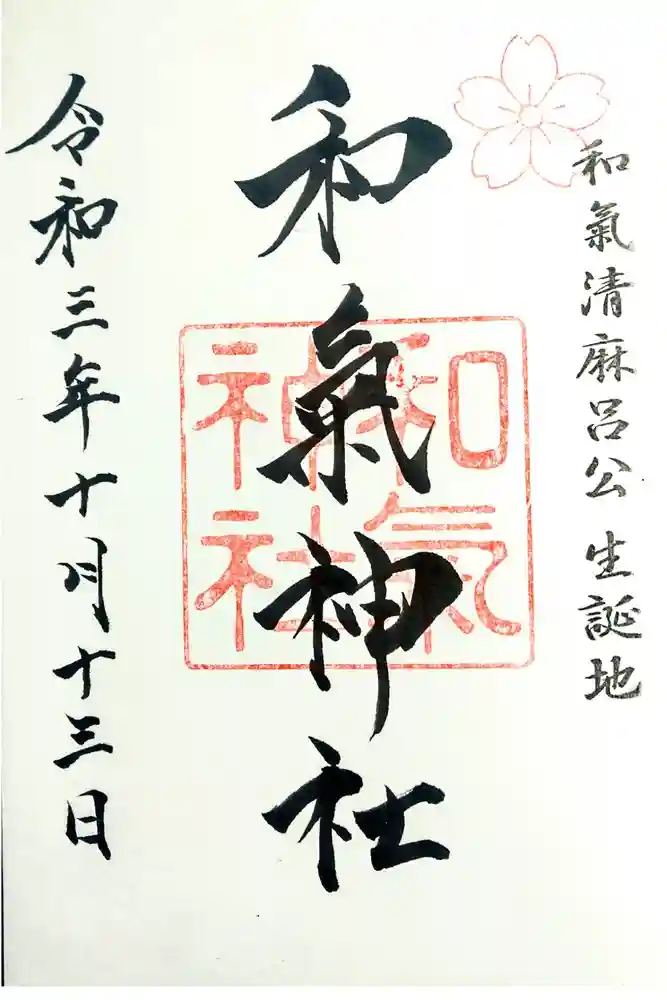 和氣清麻呂公 生誕地
和氣神社
和氣
神社
令和三年十月十三日